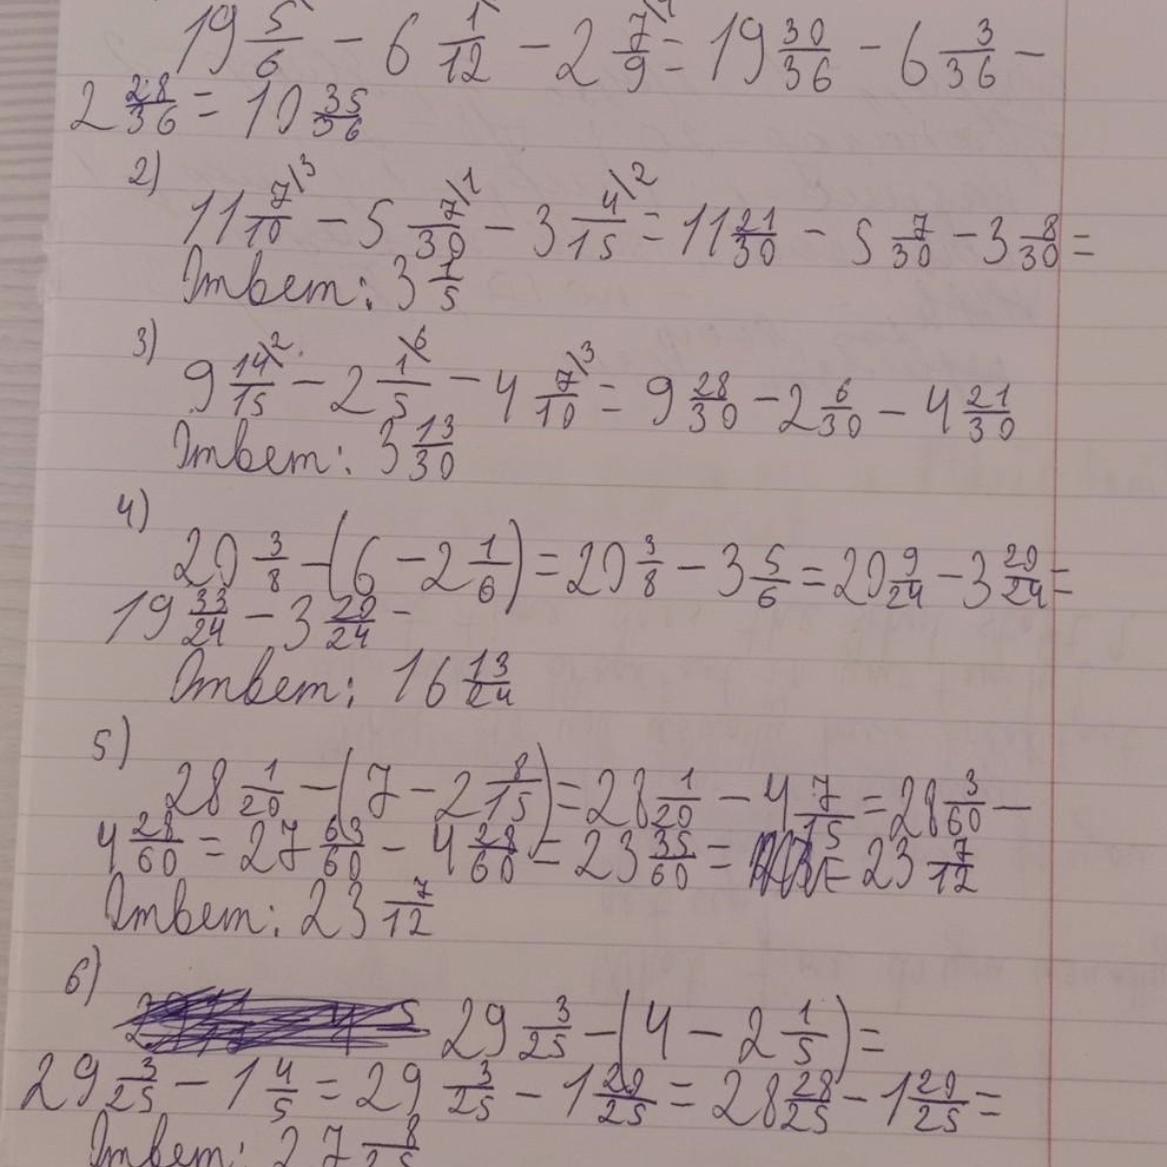 19 5/6 − 6 1/12 − 2 7/9 = 19 30/36 − 6 3/36 −
2 28/36 = 10 35/36
2)
11 7/10\3 − 5 7/30\1 − 3 4/15\2 = 11 21/30 − 5 7/30 − 3 8/30 =
Ответ: 3 1/5
3)
9 14/15\2 − 2 1/5\6 − 4 7/10\3 = 9 28/30 − 2 6/30 − 4 21/30
Ответ: 3 13/30
4)
20 3/8 − (6 − 2 1/6) = 20 3/8 − 3 5/6 = 20 9/24 − 3 20/24 =
19 33/24 − 3 20/24 =
Ответ: 16 13/24
5)
28 1/20 − (7 − 2 8/15) = 28 1/20 − 4 7/15 = 28 3/60 −
4 28/60 = 27 63/60 − 4 28/60 = 23 35/60 = = 23 7/12
Ответ: 23 7/12
6)
29 3/25 − (4 − 2 1/5) =
29 3/25 − 1 4/5 = 29 3/25 − 1 20/25 = 28 28/25 − 1 20/25 =
Ответ: 27 8/25